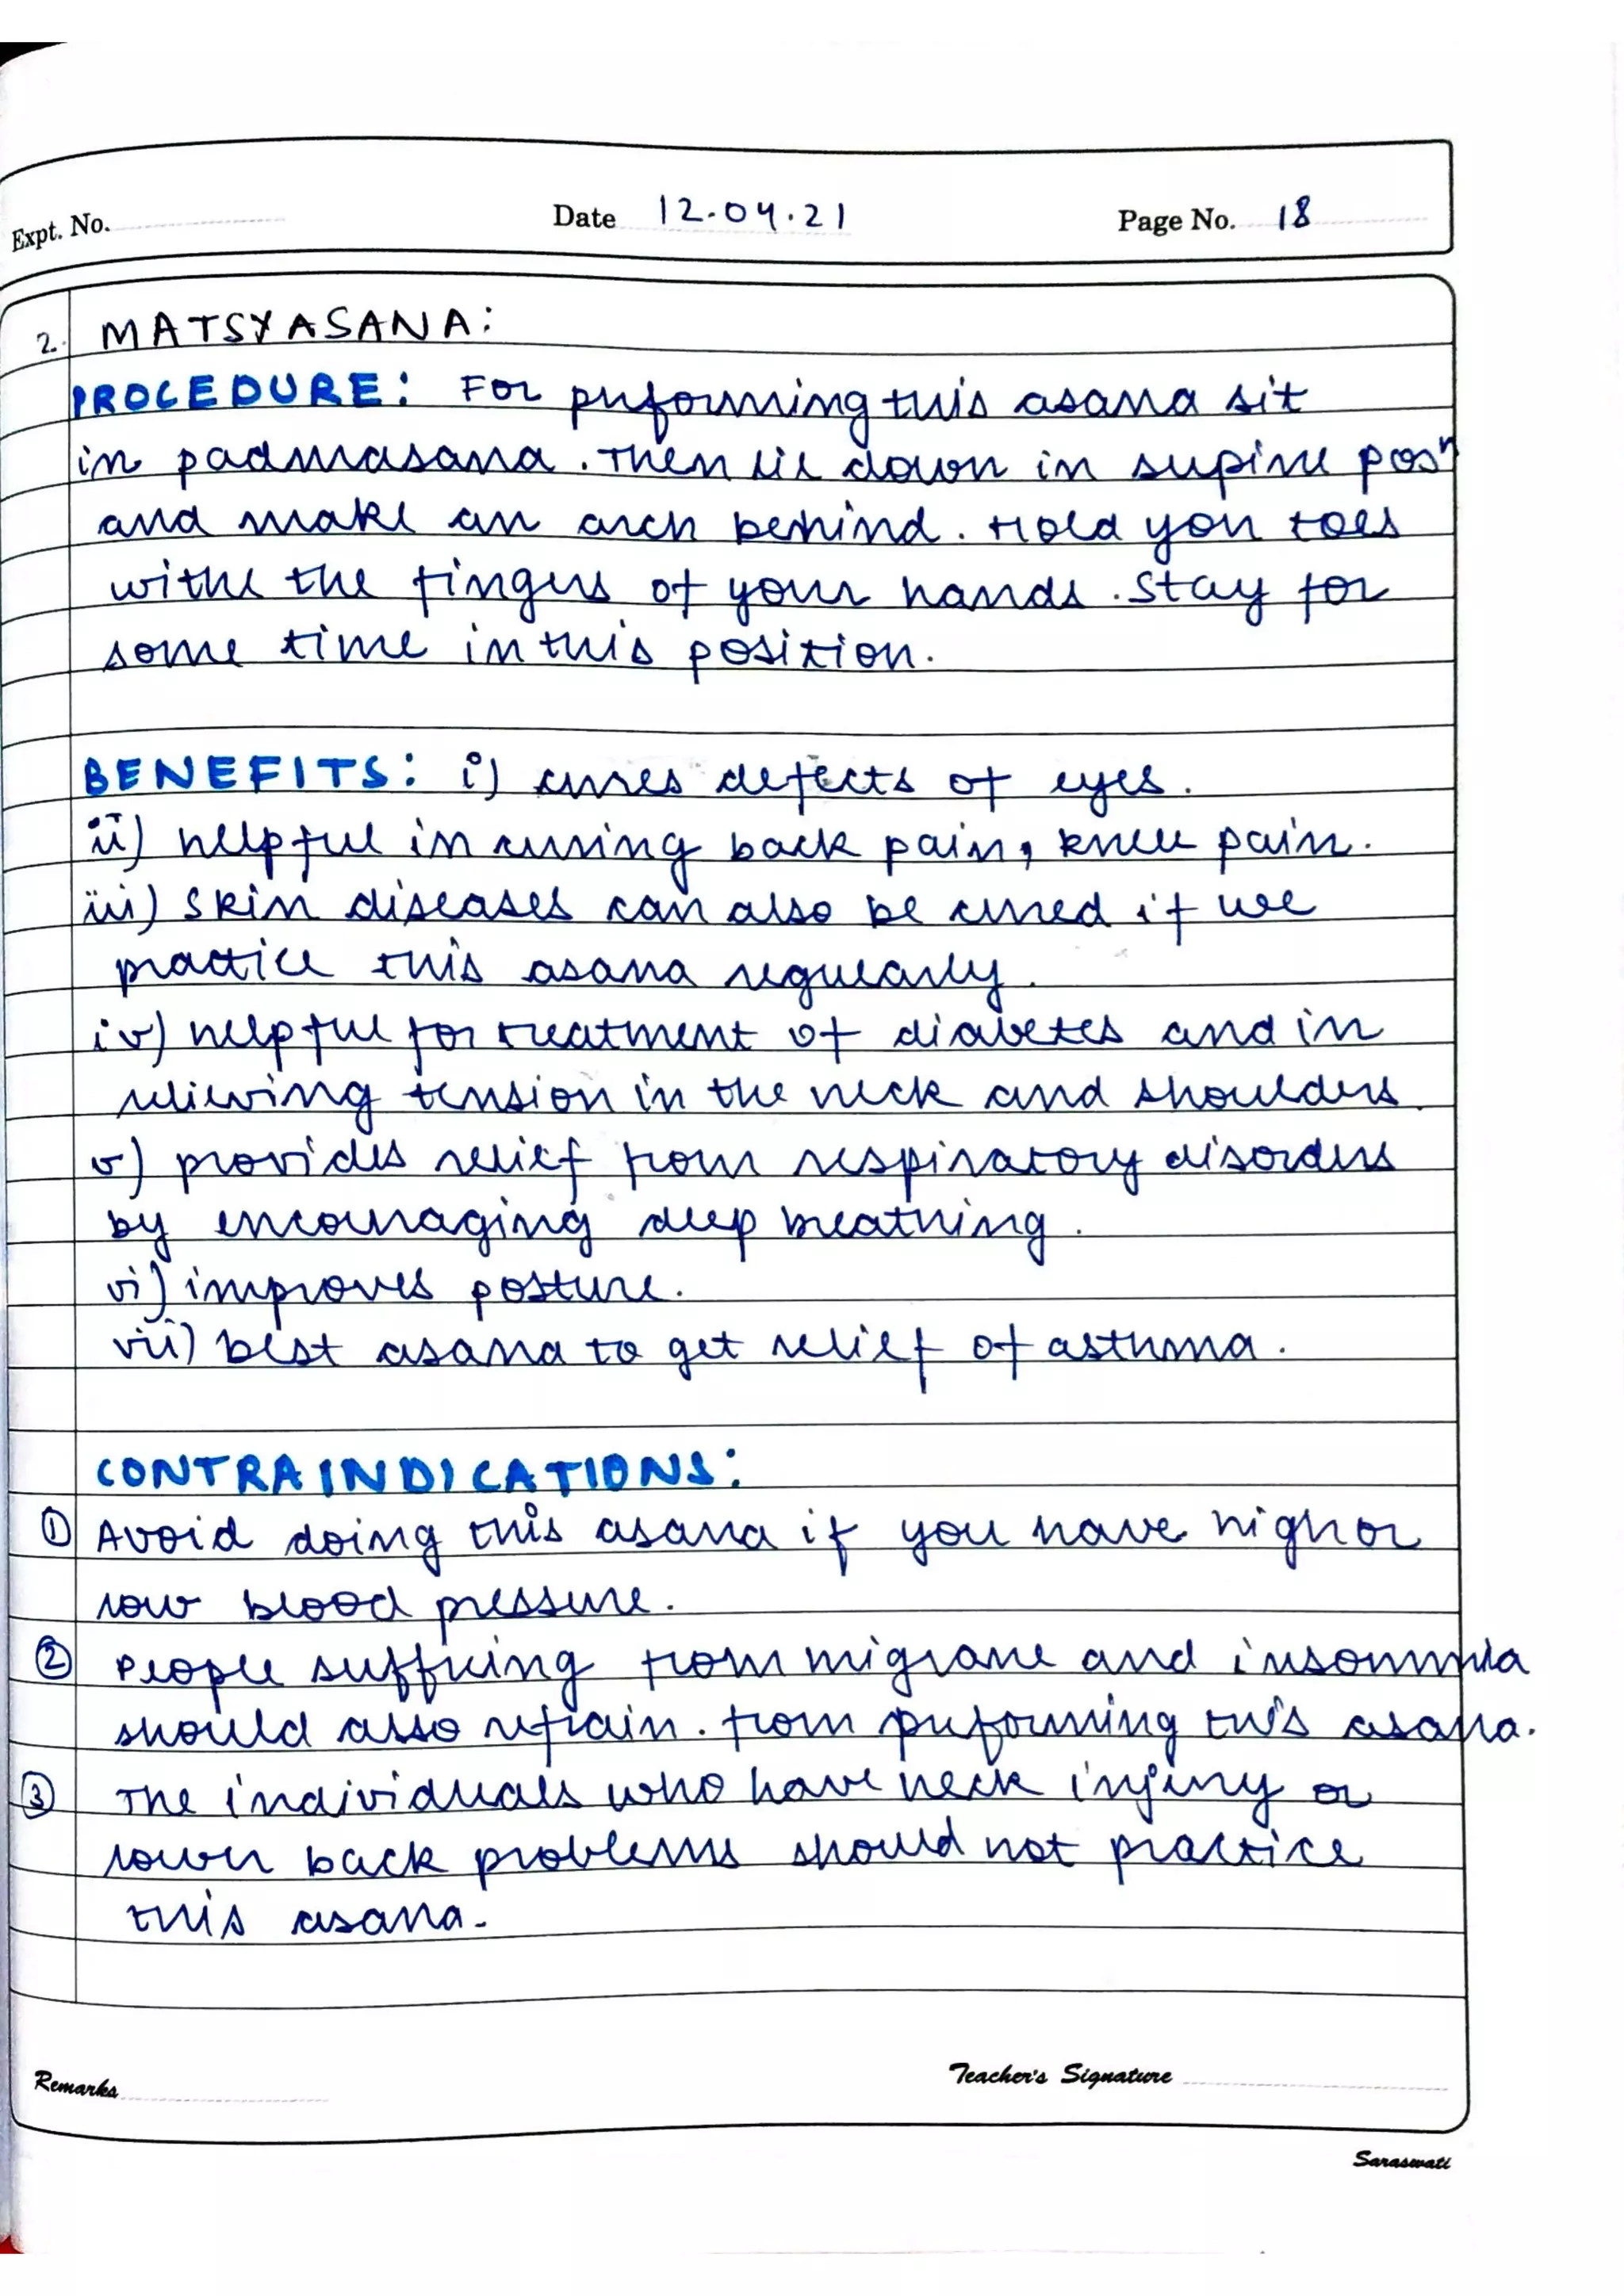 Expt. No. Date 12.04.21 Page No. 18
2. MATSYASANA:
PROCEDURE: For performing this asana sit
in padmasana. Then lie down in supine posⁿ
and make an arch behind. Hold you toes
withe the fingers of your hands. Stay for
some time in this position.
BENEFITS: i) cures defects of eyes.
ii) helpful in curing back pain, knee pain.
iii) Skin diseases can also be cured if we
practice this asana regularly.
iv) helpful for treatment of diabetes and in
relieving tension in the neck and shoulders.
v) provides relief from respiratory disorders
by encouraging deep breathing.
vi) improves posture.
vii) best asana to get relief of asthma.
CONTRAINDICATIONS:
① Avoid doing this asana if you have high or
low blood pressure.
② People suffering from migrane and insomnia
should also refrain. from performing this asana.
③ The individuals who have neck injury or
lower back problems should not practice
this asana.
Remarks Teacher's Signature
Saraswati